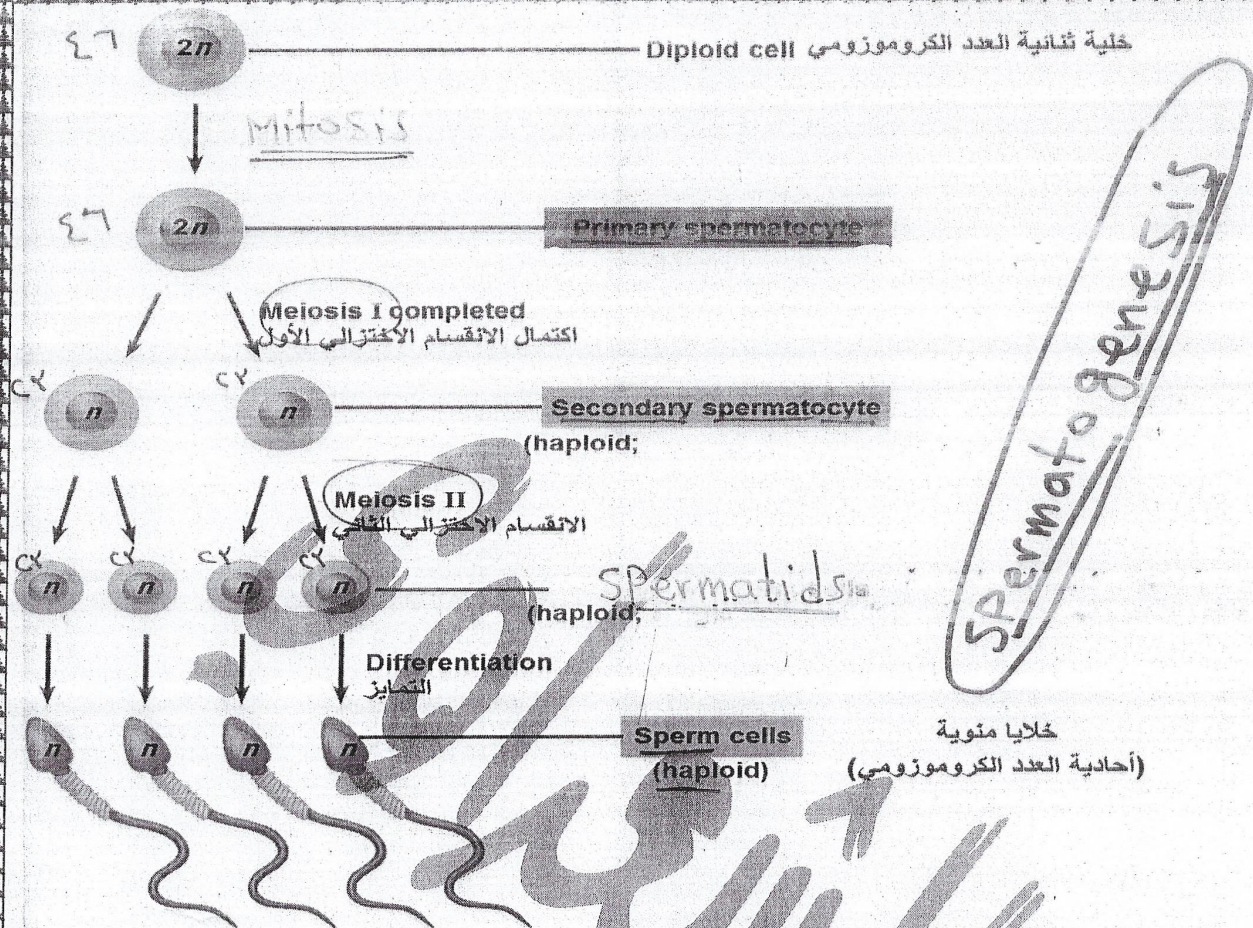 ٤٦
2n
Diploid cell خلية ثنائية العدد الكروموزومي
Mitosis
٤٦
2n
Primary spermatocyte
Meiosis I completed
اكتمال الانقسام الاختزالي الأول
٢٣
n
٢٣
n
Secondary spermatocyte
(haploid;
Meiosis II
الانقسام الاختزالي الثاني
٢٣
n
٢٣
n
٢٣
n
٢٣
n
Spermatids
(haploid;
Differentiation
التمايز
n
n
n
n
Sperm cells
(haploid)
خلايا منوية
(أحادية العدد الكروموزومي)
Spermatogenesis